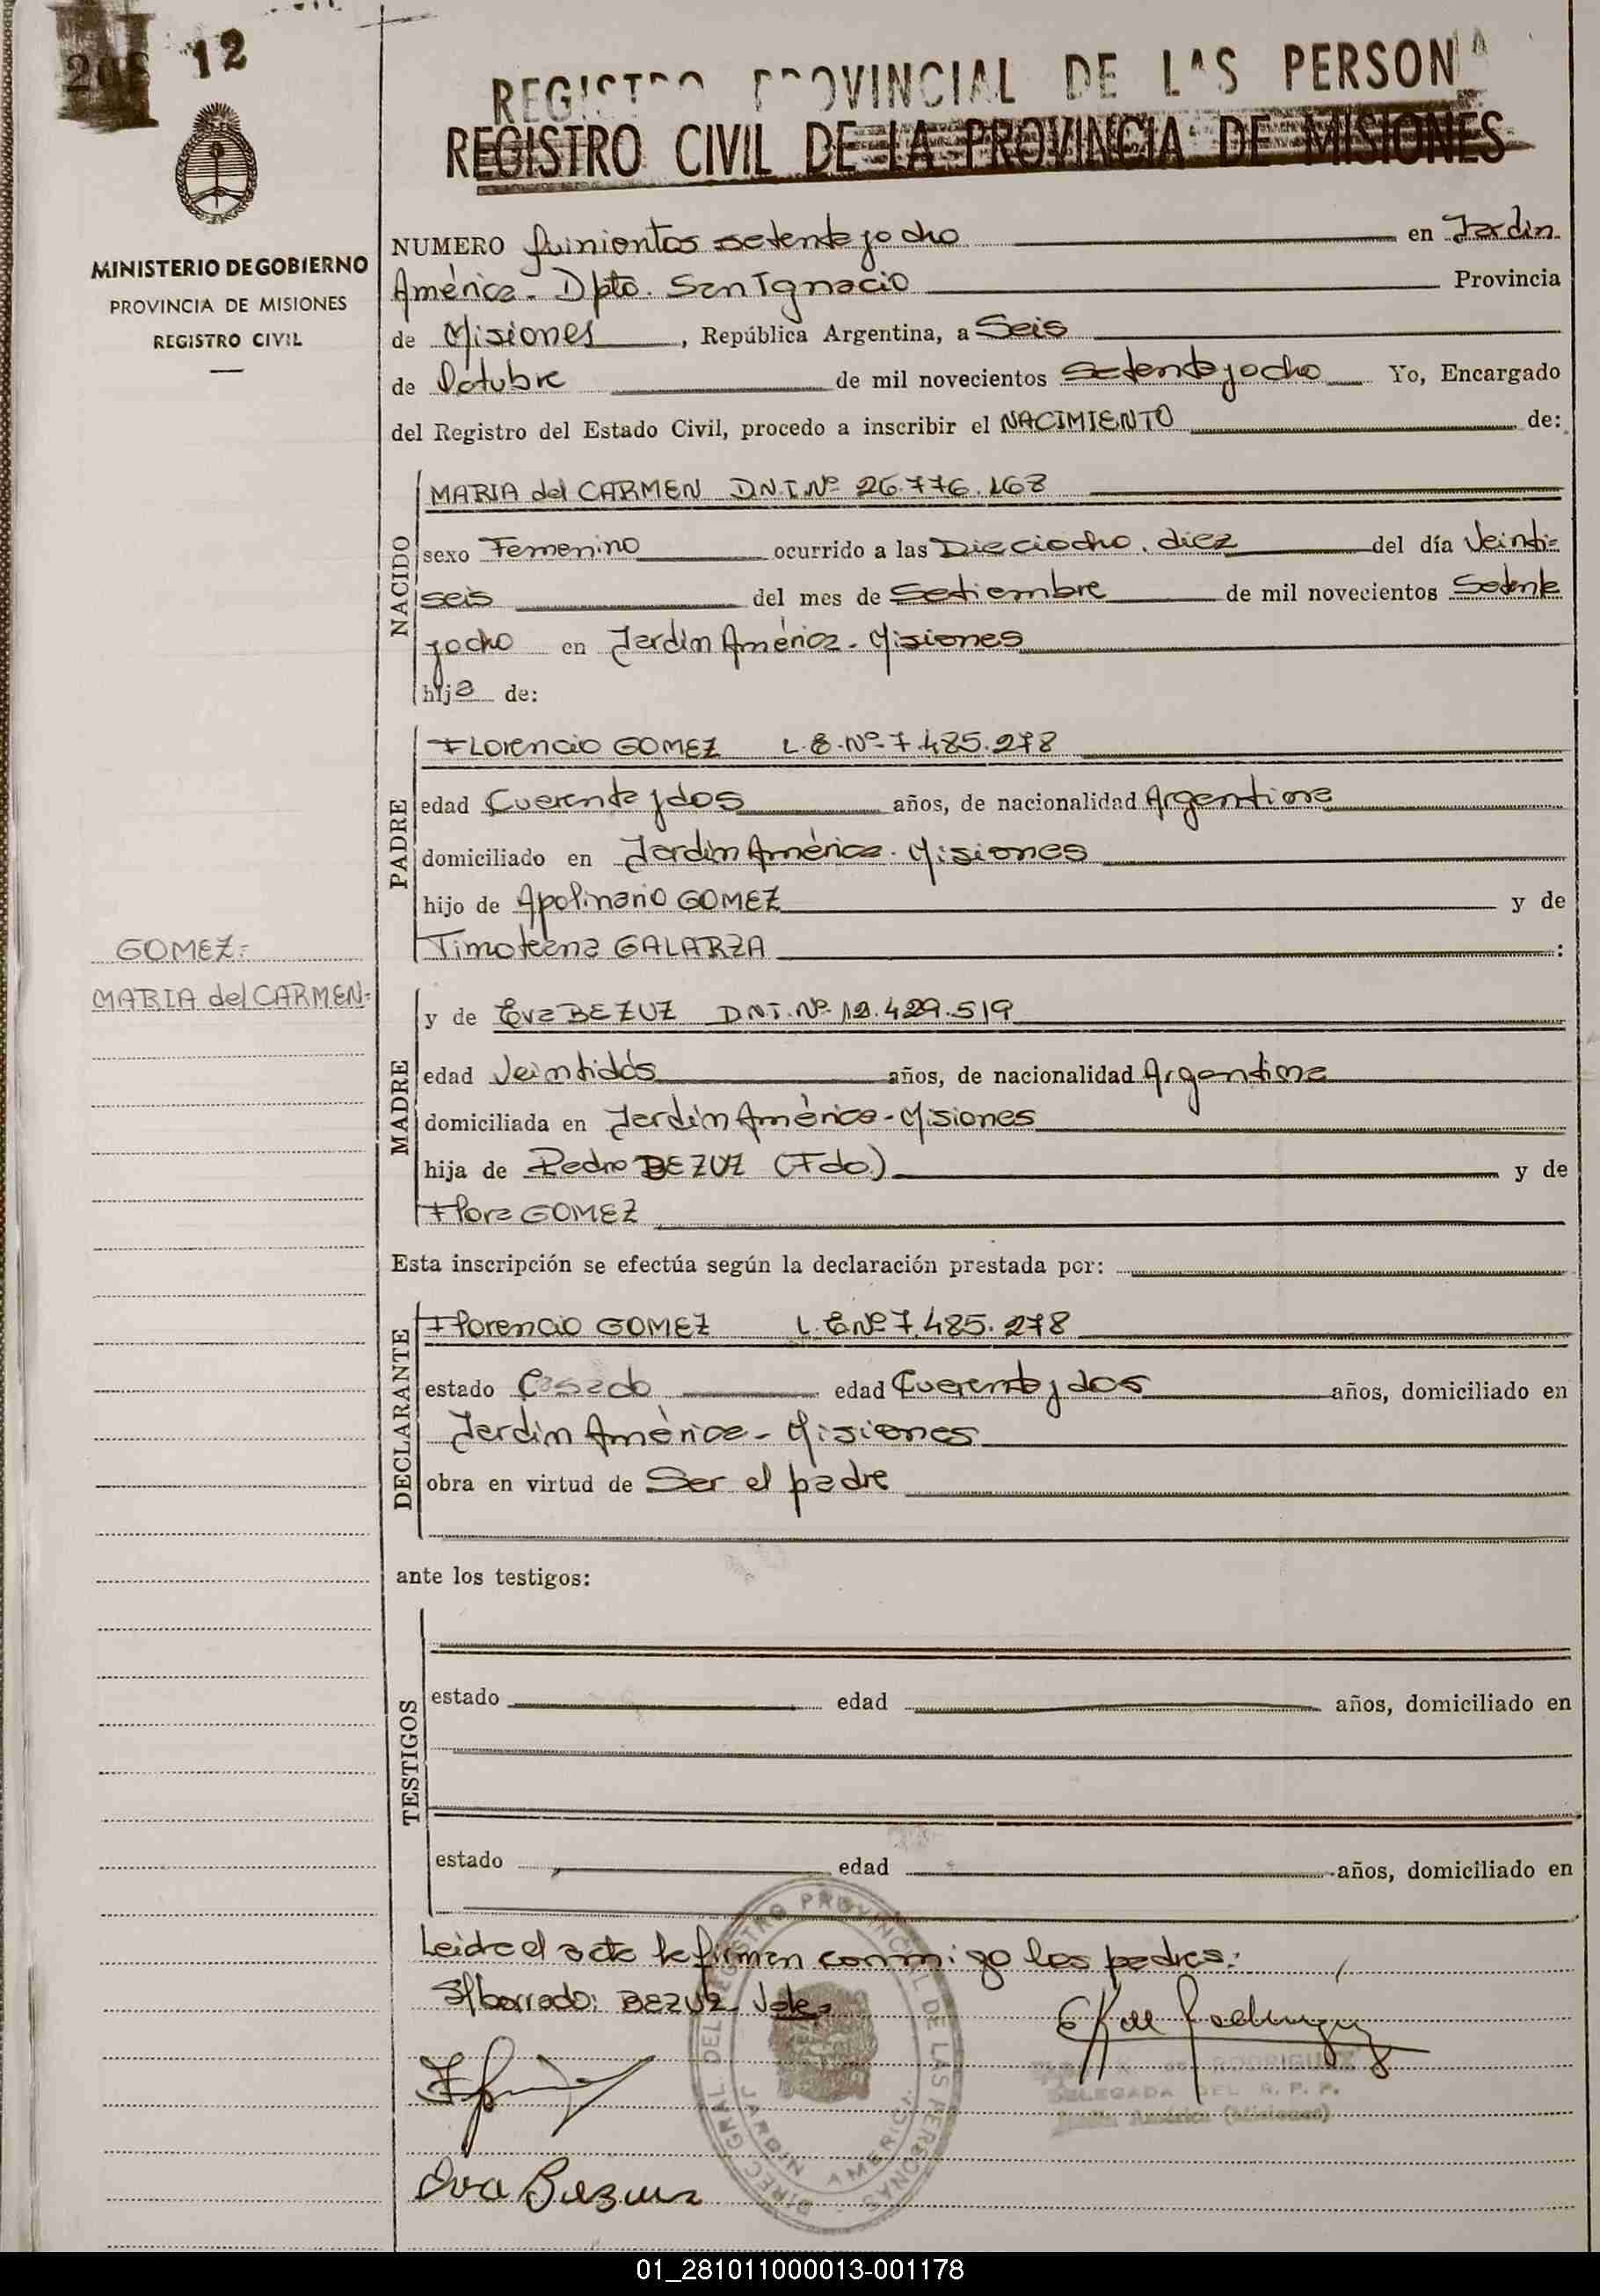 208 12
REGISTRO PROVINCIAL DE LAS PERSONA
REGISTRO CIVIL DE LA PROVINCIA DE MISIONES
MINISTERIO DE GOBIERNO
PROVINCIA DE MISIONES
REGISTRO CIVIL
NUMERO Quinientos setentayocho en Jardín
América - Dpto. San Ignacio Provincia
de Misiones, República Argentina, a Seis
de Octubre de mil novecientos setentayocho Yo, Encargado
del Registro del Estado Civil, procedo a inscribir el NACIMIENTO de:
NACIDO
MARIA del CARMEN D.N.I.Nº 26.776.168
sexo Femenino ocurrido a las Dieciocho, diez del día Veinti=
seis del mes de Setiembre de mil novecientos Setenta
yocho en Jardín América - Misiones
hija de:
PADRE
FLorencio GOMEZ L.E.Nº 7.485.278
edad Cuarenta y dos años, de nacionalidad Argentina
domiciliado en Jardín América - Misiones
hijo de Apolinario GOMEZ y de
Timoteena GALARZA :
GOMEZ:
MARIA del CARMEN=
MADRE
y de Eva BEZUZ DNI.Nº 12.429.519
edad Veintidós años, de nacionalidad Argentina
domiciliada en Jardín América - Misiones
hija de Pedro BEZUZ (Fdo.) y de
Flora GOMEZ
Esta inscripción se efectúa según la declaración prestada por:
DECLARANTE
Florencio GOMEZ L.E.Nº 7.485.278
estado Casado edad Cuarenta y dos años, domiciliado en
Jardín América - Misiones
obra en virtud de Ser el padre
ante los testigos:
TESTIGOS
estado edad años, domiciliado en
estado edad años, domiciliado en
Leída el acta la firman conmigo los padres:
S/borrado: BEZUZ Vale
DIREC. GRAL. DEL REGISTRO PROVINCIAL DE LAS PERSONAS
JARDIN AMERICA
RODRIGUEZ
DELEGADA DEL R. P. P.
Jardín América (Misiones)
Eva Bezuz
01_281011000013-001178